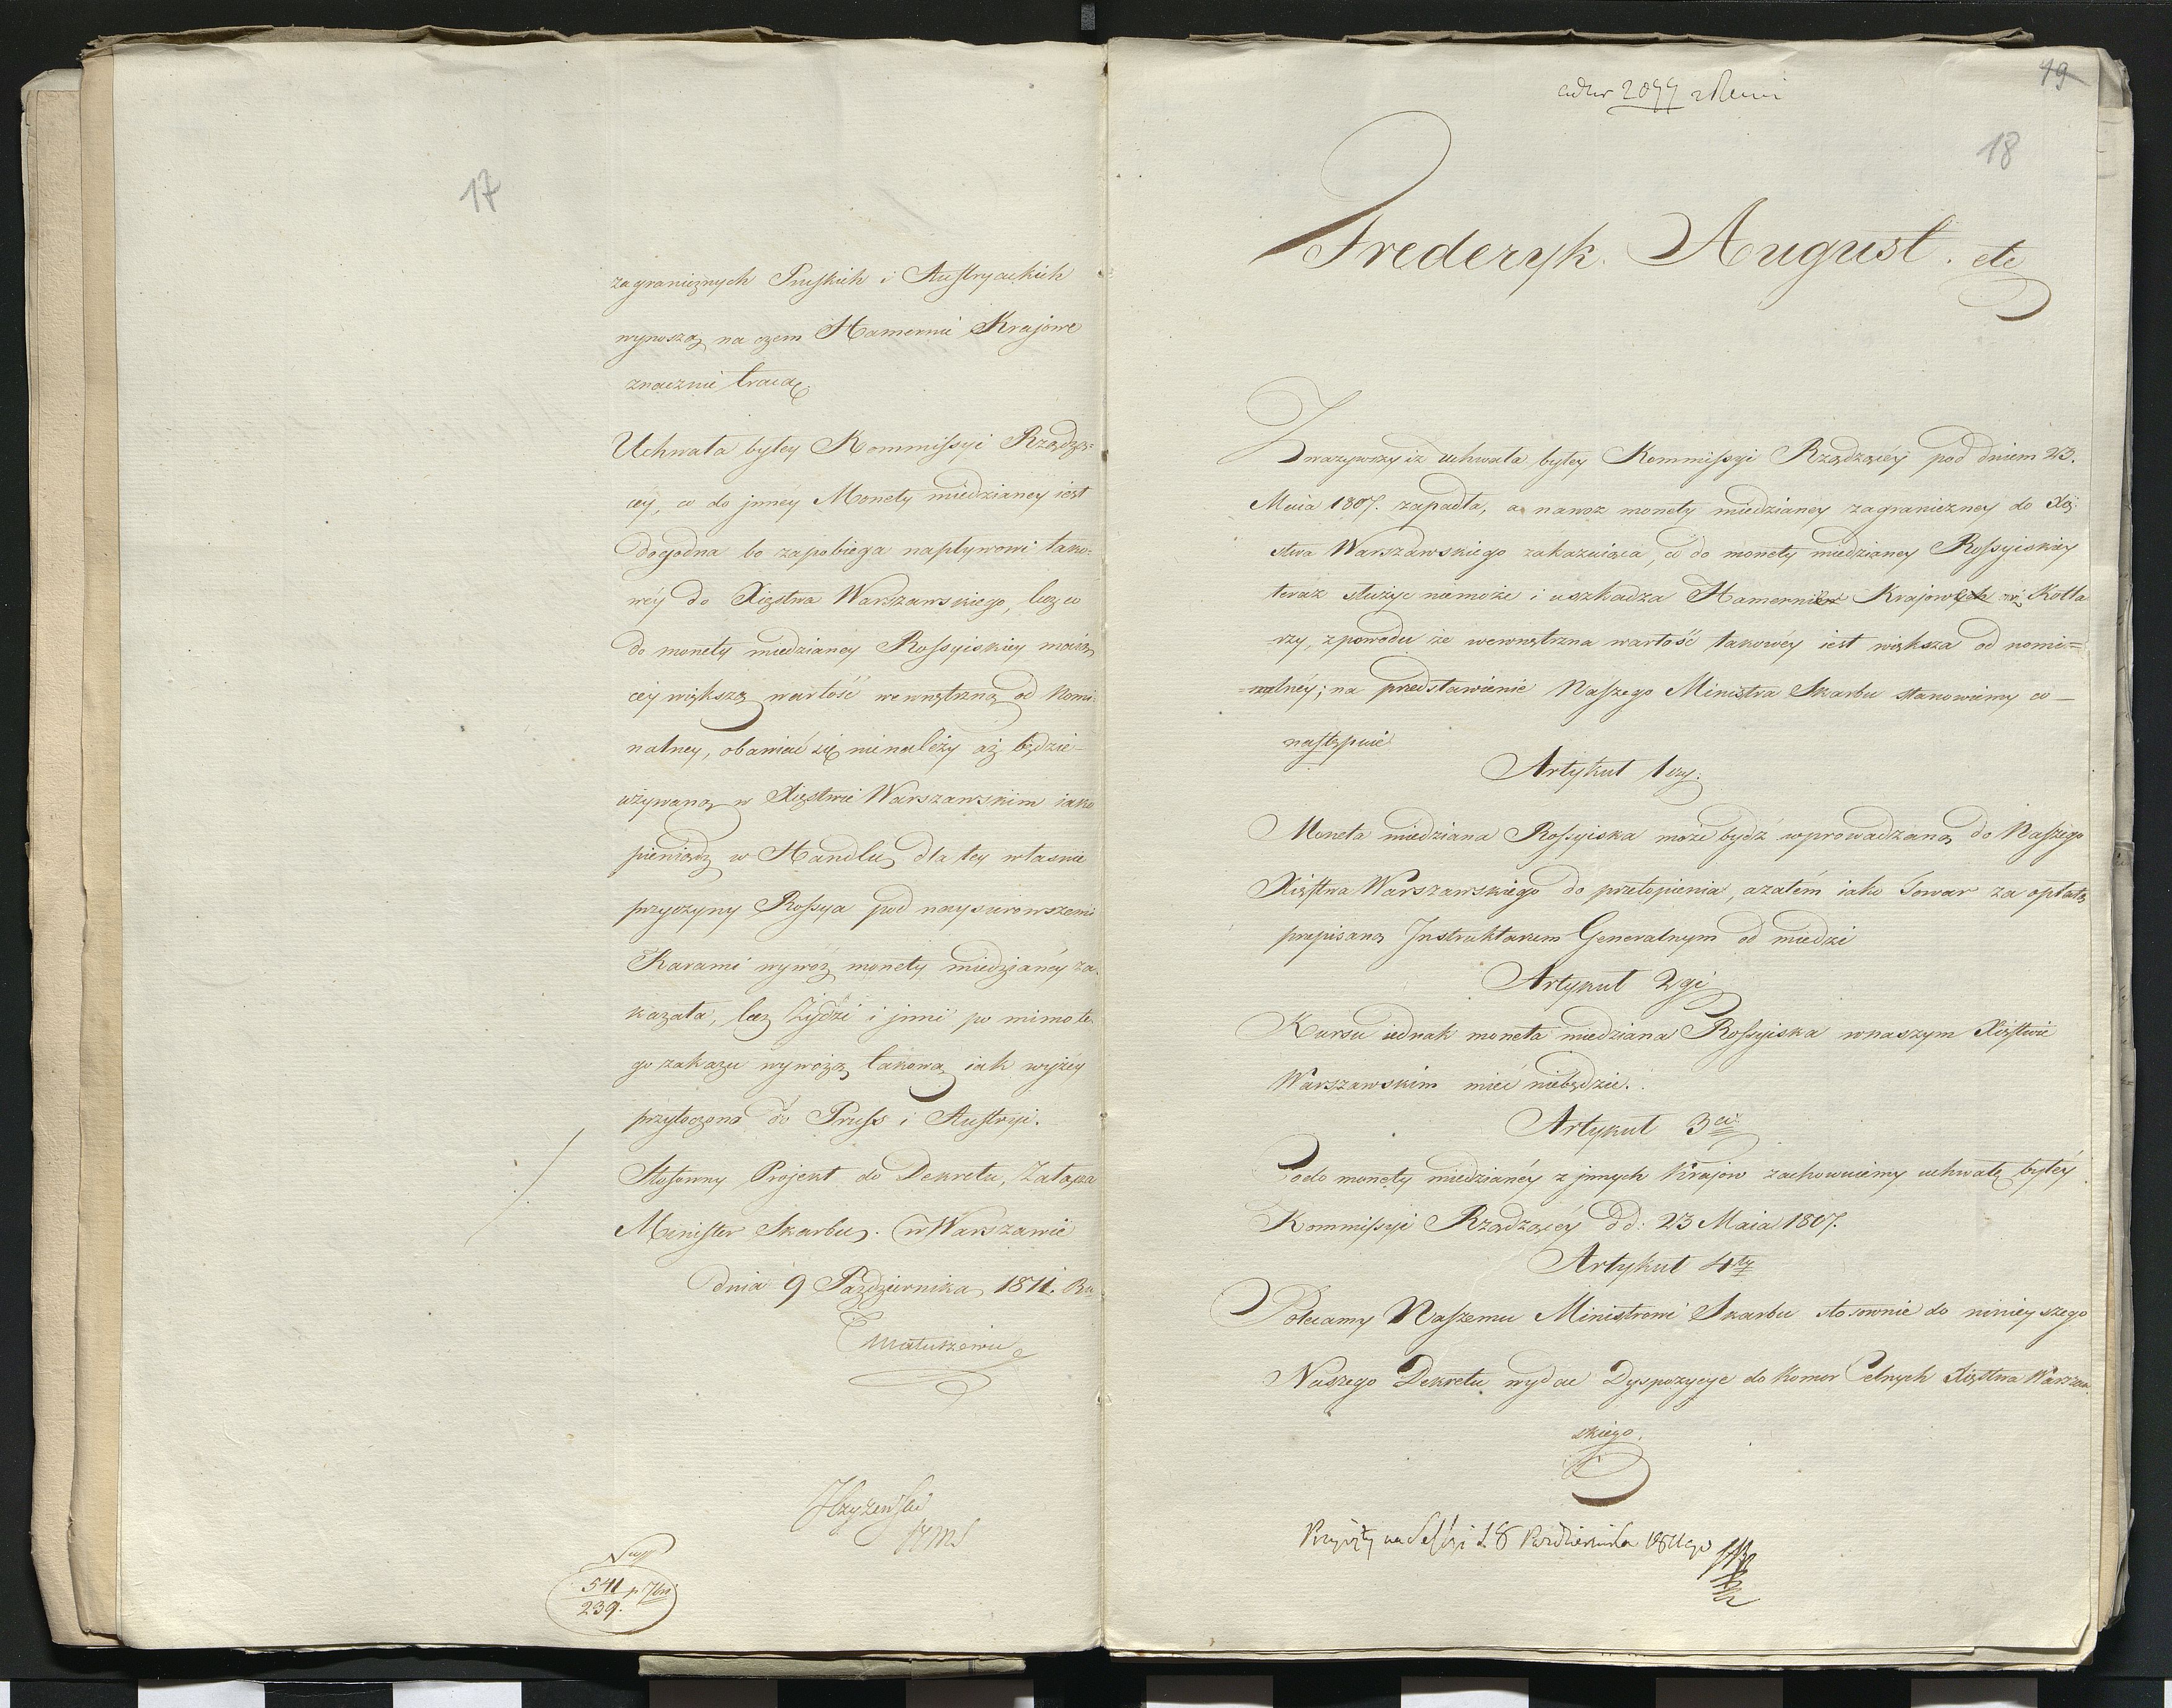 17
zagranicznych Pruskich i Austryackich
wynoszą, na czem Hamernie Krajowe
znacznie tracą.
Uchwała byłey Kommissyi Rządzą=
cey, co do jnnéy Monety miedzianey iest
dogodna bo zapobiega napływowi tako-
wéy do Xięstwa Warszawskiego, lecz co
do monety miedzianey Rossyiskiey maią
céy większą wartość wewnętrzną od Nomi-
nalney, obawiać się nienależy aż będzie
używaną w Xięstwie Warszawskim iako
pieniądz w Handlu, dla tey własnie
przyczyny Rossya pod naysurowszemi
Karami wywoz monety miedzianéy za-
kazała, lecz Żydzi i jnni po mimo te-
go zakazu wywożą takową iak wyżéy
przytoczono do Pruss i Austryi.
Stosowny Projekt do Dekretu, Załącza
Minister Skarbu. w Warszawie
dnia 9 Października 1811. Ro
Matuszewic
541
239.
19
2077
18
Frederyk August. etc
Zważywszy iż uchwała byłey Kommissyi Rządzącéy pod dniem 23.
Maia 1807. zapadła, a nawoz monety miedzianey zagraniczney do Xię-
stwa Warszawskiego zakazuiąca, co do monety miedzianey Rossyiskiey
teraz służyc niemoże i uszkadza Hamernie Krajowych Kotla
rzy, z powodu że wewnętrzna wartość takowéy iest większa od nomi=
=nalnéy; na przedstawienie Naszego Ministra Skarbu stanowiemy co
następuie
Artykuł 1szy.
Moneta miedziana Rossyiska może bydź wprowadzaną do Naszego
Xięstwa Warszawskiego do przetopienia, azatém iako Towar za opłatą
przepisaną Jnstruktarzem Generalnym od miedzi
Artykuł 2gi
Kursu iednak moneta miedziana Rossyiska w naszym Xięstwie
Warszawskim mieć niebędzie.
Artykuł 3ci
Codo monety miedzianéy z jnnych Krajow zachowuiemy uchwałę byłéy
Kommissyi Rządzącéy dd: 23 Maia 1807.
Artykuł 4ty
Polecamy Naszemu Ministrowi Skarbu stosownie do ninieyszego
Naszego Dekretu wydać Dyspozycye do Komor Celnych Xięstwa Warszaw-
skiego.
Przyięty na Sessyi d. 8 Października 1811go